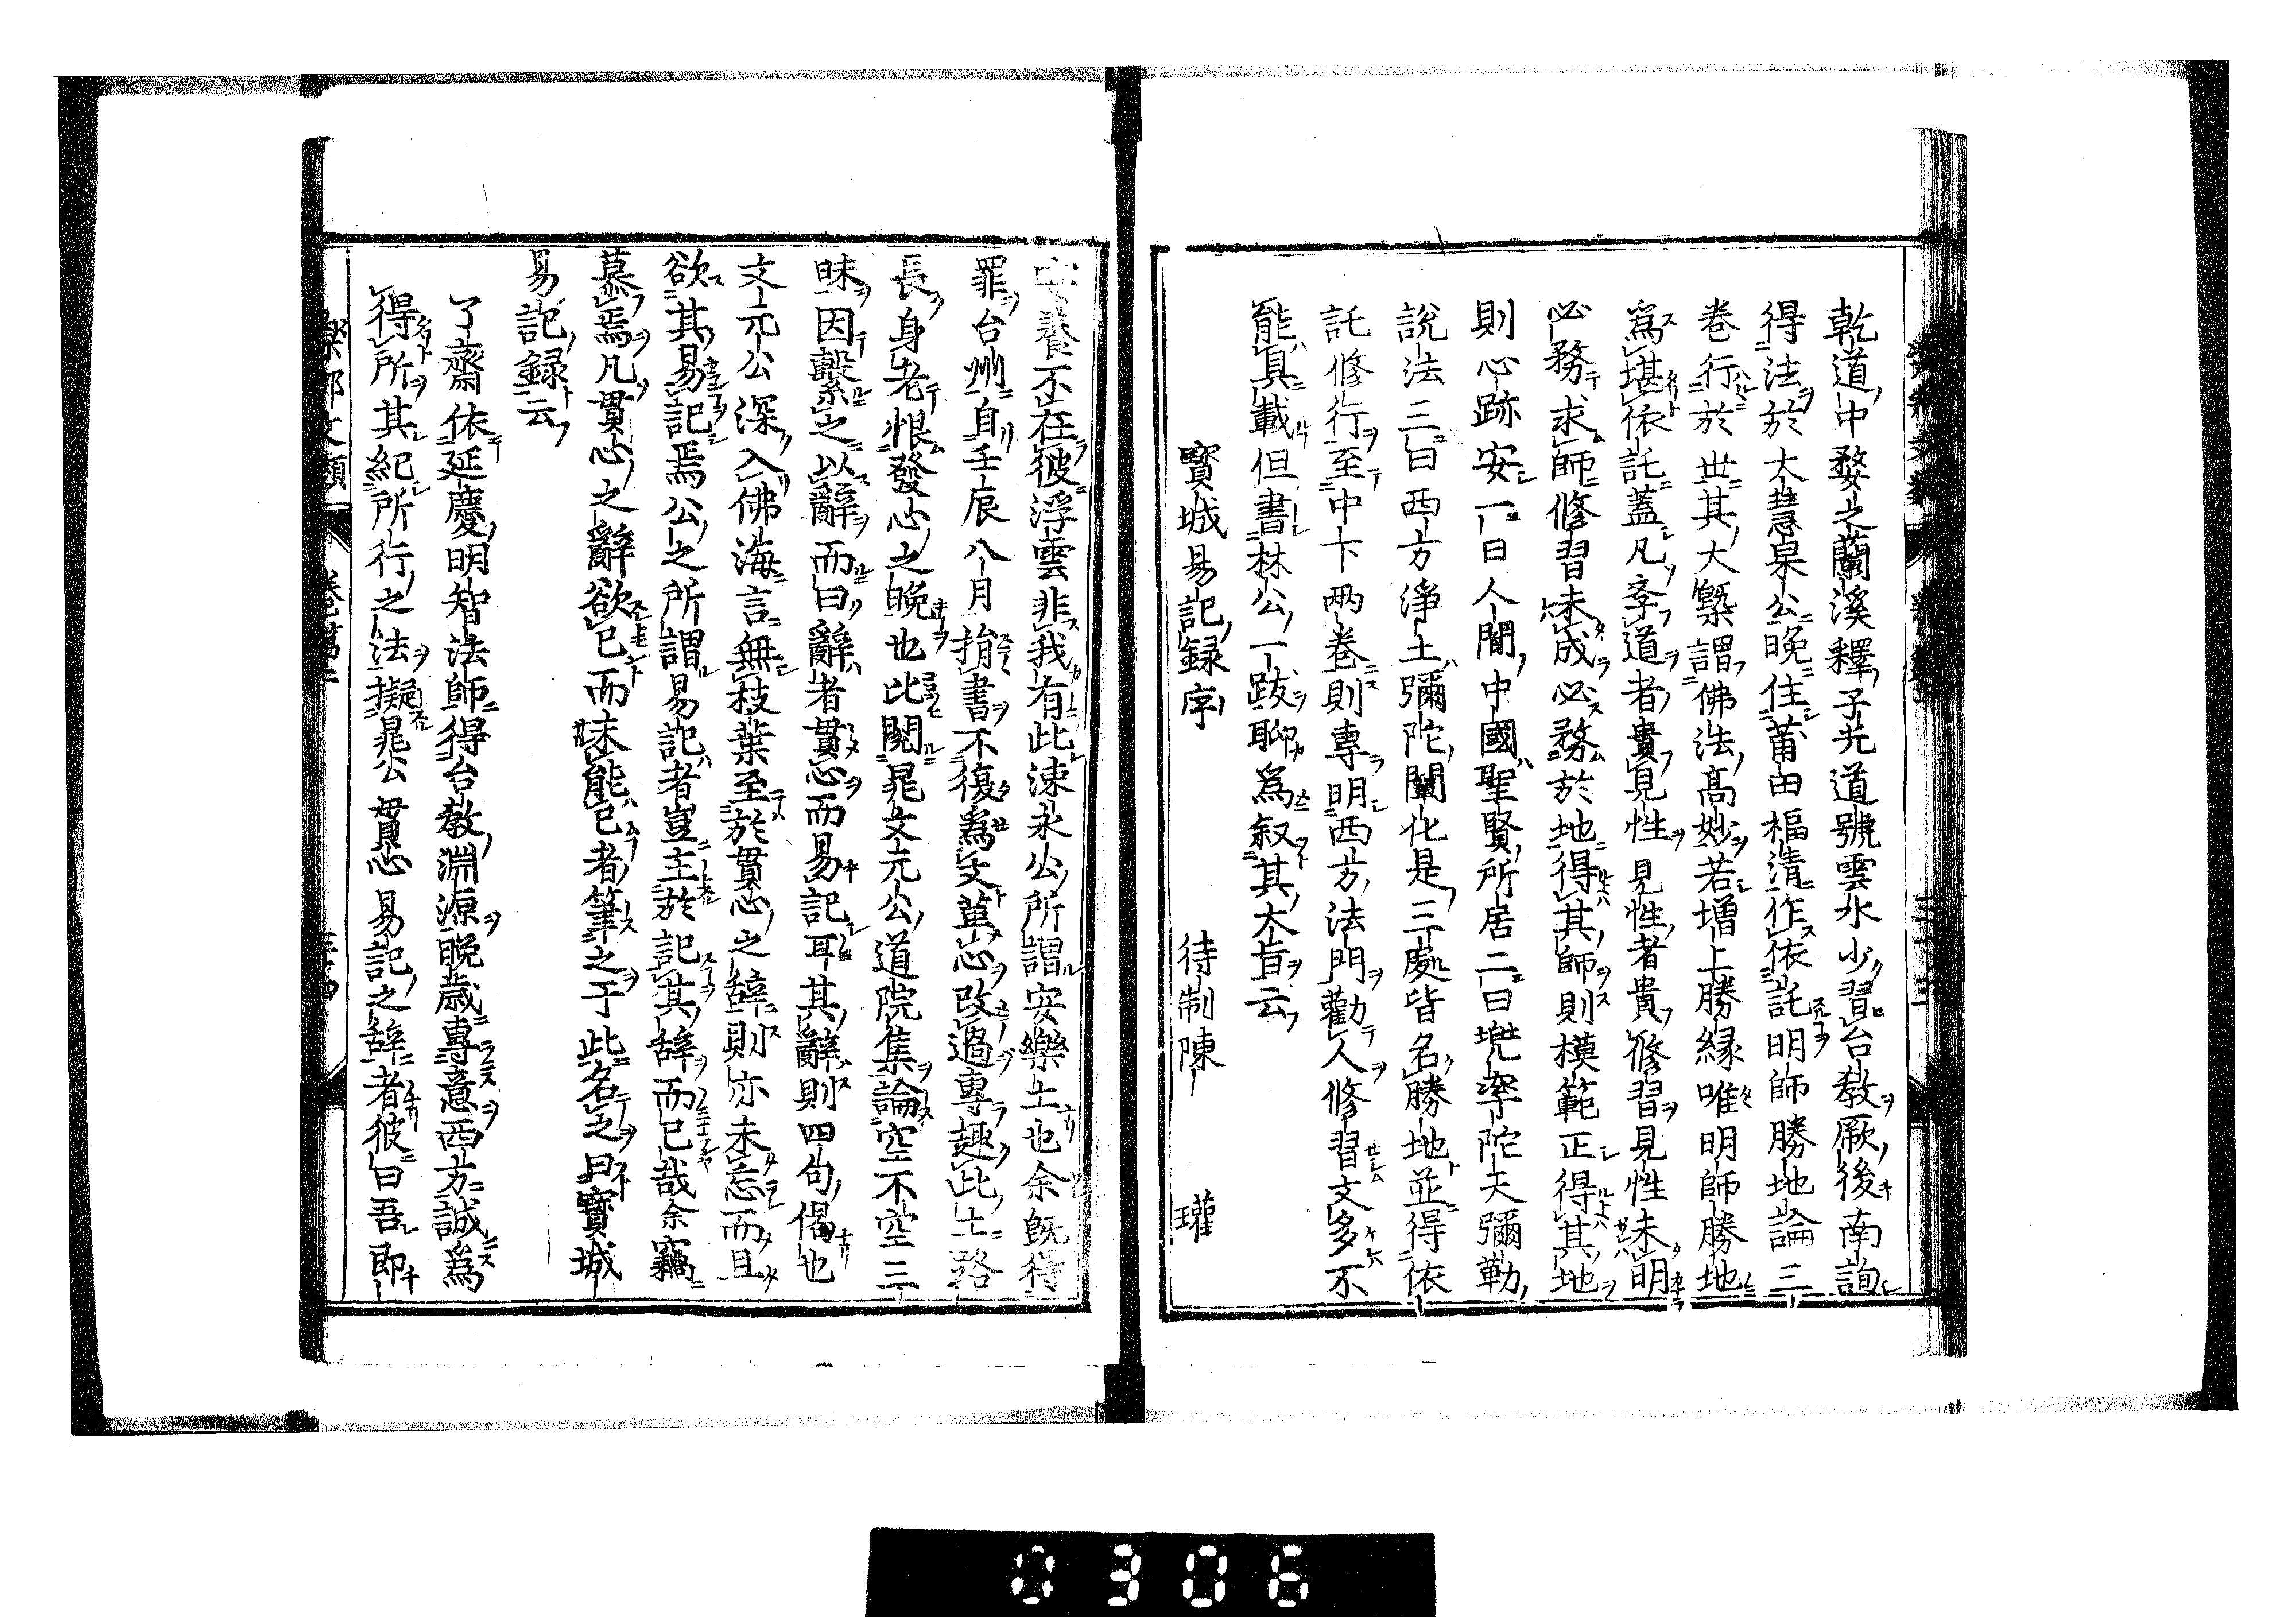 乾道中婺之蘭溪釋子光道號雲水少習台教厥後南詢
得法於大慧杲公晚住莆田福清作依託明師勝地論三
卷行於世其大槩謂佛法高妙若增上勝緣唯明師勝地
爲堪依託蓋凡斈道者貴見性見性者貴修習見性未明
必務求師修習未成必務於地得其師則模範正得其地
則心跡安一曰人間中國聖賢所居二曰兠率陀天彌勒
說法三曰西方淨土彌陀闡化是三處皆名勝地並得依
託修行至中卞两卷則專明西方法門勸人修習文多不
能具載但書林公一跋聊爲叙其大旨云
寳城易記録序　待制陳　瓘
安養不在彼浮雲非我有此涑水公所謂安樂土也余旣得
罪台州自壬辰八月㨁書不復爲文革心改過專趣此土路
長身老恨發心之晚也比閱晁文元公道院集論空不空三
昧因繫之以辭而曰辭者貫心而易記耳其辭則四句偈也
文元公深入佛海言無枝葉至於貫心之辞則亦未忘而且
欲其易記焉公之所謂易記者豈主於記其辞而已哉余竊
慕焉凡貫心之辭欲已而未能已者筆之于此名之曰寳城
易記録云
了齋依延慶明智法師得台教淵源晚歲專意西方誠爲
得所其紀所行之法擬晁公貫心易記之辞者彼曰吾即
樂邦文類　卷第二　三十四